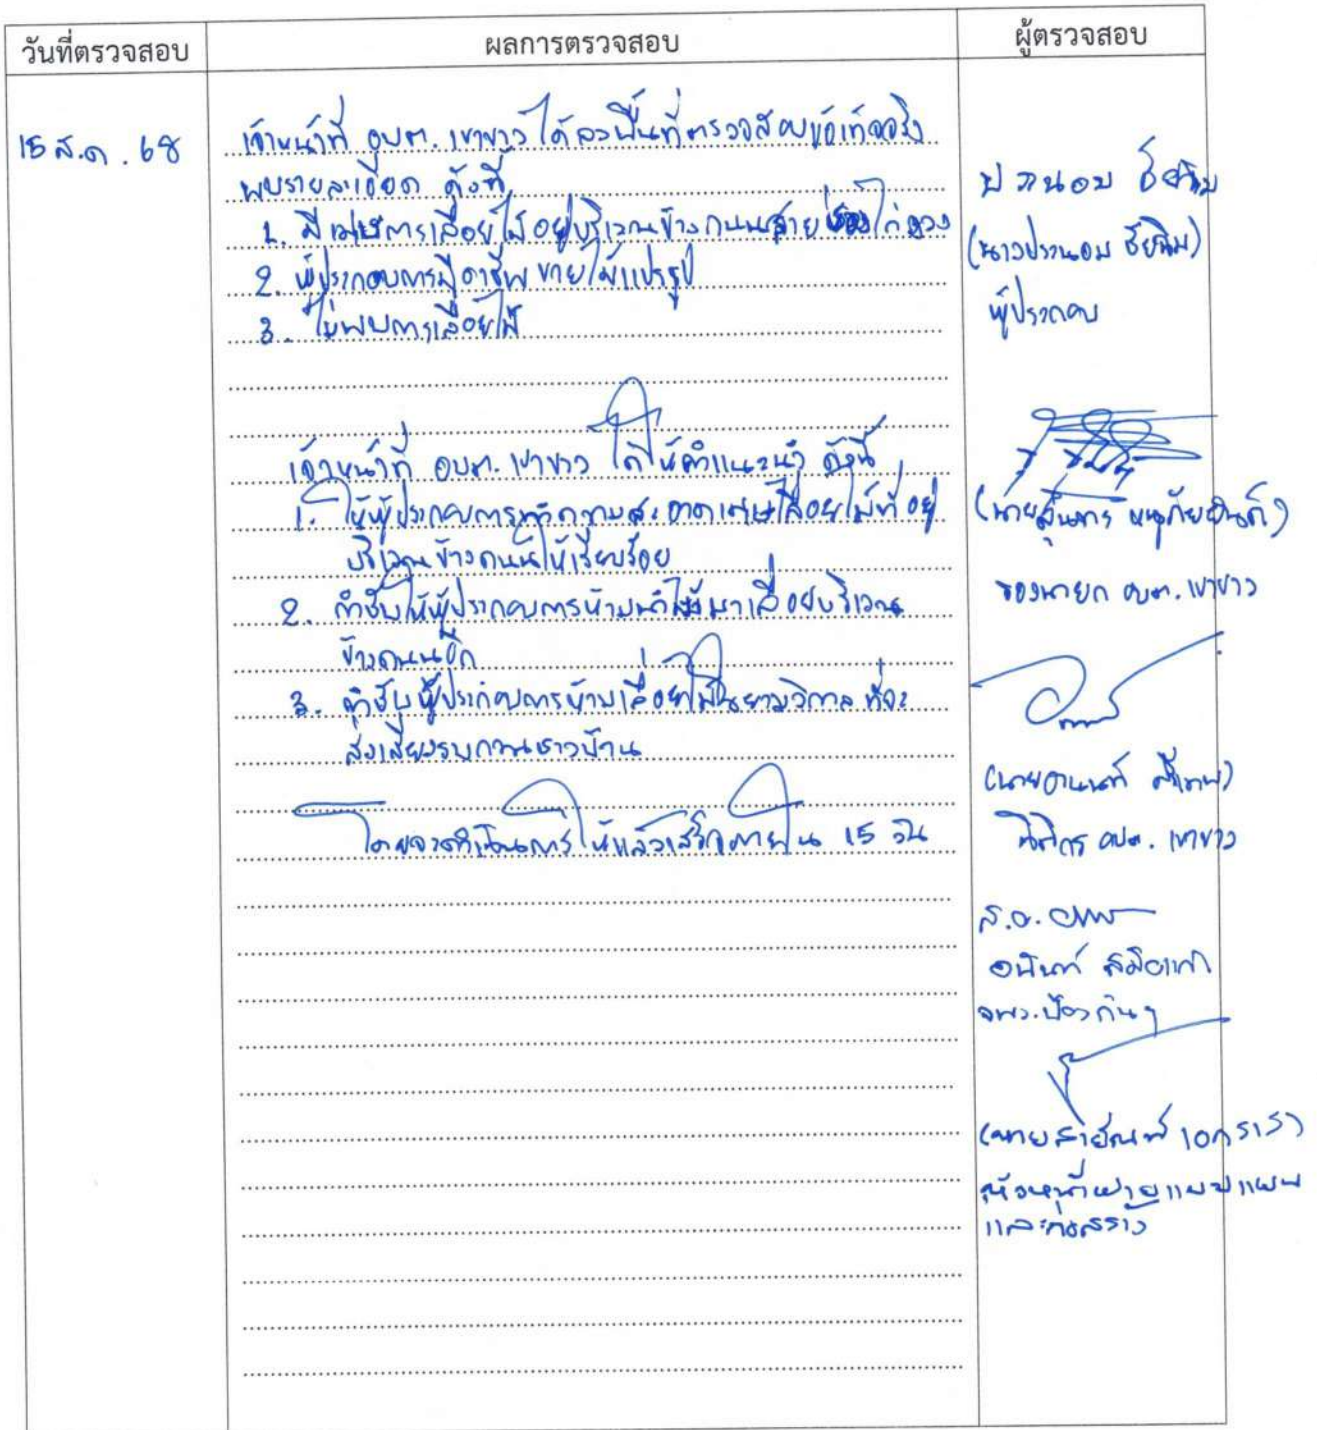 วันที่ตรวจสอบ
ผลการตรวจสอบ
ผู้ตรวจสอบ
15 ส.ค. 68
เจ้าหน้าที่ อบต. เขาขาว ได้ลงพื้นที่ตรวจสอบข้อเท็จจริง
พบรายละเอียด ดังนี้
1. มีเศษการเลื่อยไม้อยู่บริเวณข้างถนนสาย
2. ผู้ประกอบการมีอาชีพ ขายไม้แปรรูป
3. ไม่พบการเลื่อยไม้
เจ้าหน้าที่ อบต. เขาขาว ได้ให้คำแนะนำ ดังนี้
1. ให้ผู้ประกอบการทำความสะอาดเศษเลื่อยไม้ที่อยู่
บริเวณข้างถนนให้เรียบร้อย
2. กำชับให้ผู้ประกอบการห้ามนำไม้มาเลื่อยบริเวณ
ข้างถนนอีก
3. กำชับผู้ประกอบการห้ามเลื่อยไม้ในยามวิกาล ที่จะ
ส่งเสียงรบกวนชาวบ้าน
โดยจะดำเนินการให้แล้วเสร็จภายใน 15 วัน
ประนอม
(นางประนอม
ผู้ประกอบ
(นาย
รองนายก อบต. เขาขาว
(นายอานนท์
นิติกร อบต. เขาขาว
ส.อ.
อนันท์
จพง.ป้องกันฯ
(นายสายัณห์
หัวหน้าฝ่ายแบบแผน
และก่อสร้าง